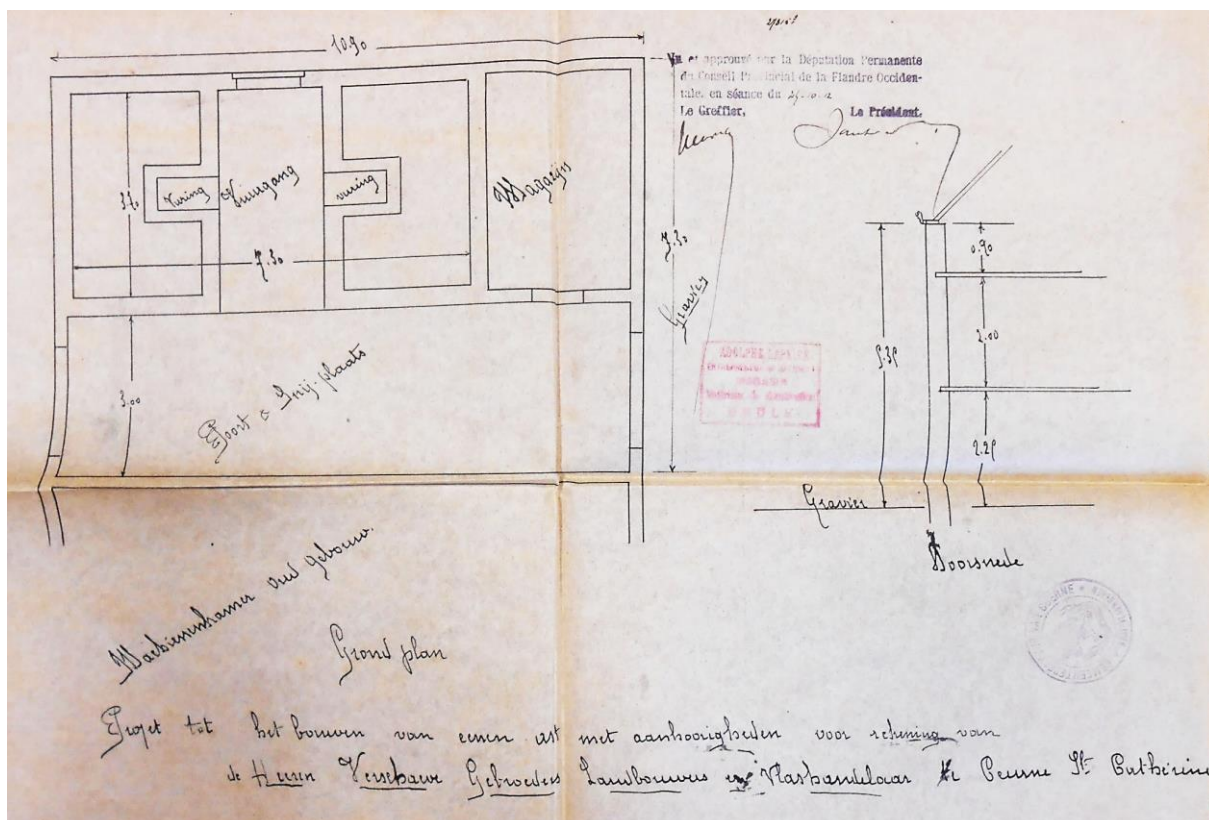 10.90
Vu et approuvé par la Députation Permanente
du Conseil Provincial de la Flandre Occiden-
tale, en séance du
Le Greffier, Le Président.
3.70
Vuring
Vuurgang
vuring
Magazijn
7.30
7.30
Gravier
3.00
Poort & Snij-plaats
0.90
2.00
5.35
2.25
Gravier
Doorsnede
Machienenkamer oud gebouw.
Grond plan
Projet tot het bouwen van eenen ast met aanhoorigheden voor rekening van
de Heeren Verschaeve Gebroeders Landbouwers en Vlashandelaar te Ceurne St Catherine